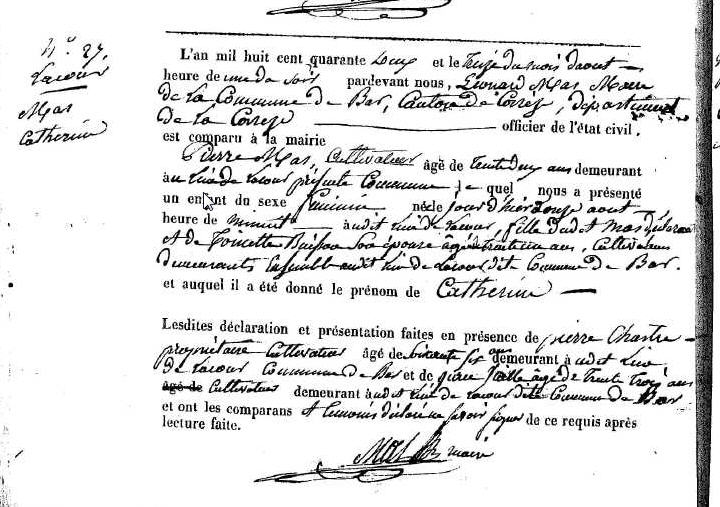 N.° 27.
Lacour
Mas
Catherine
L'an mil huit cent quarante Onze et le Treize du mois d'aout
heure de une du soir pardevant nous, Léonard Mas Maire
De la Commune De Bar, Canton de Correze, département
De la Correze officier de l'état civil.
est comparu à la mairie
Pierre Mas, Cultivateur âgé de trente deux ans demeurant
au lieu de Lacour présente Commune le quel nous a présenté
un enfant du sexe feminin née le jour d'hier Douze aout
heure de minuit audit lieu de Lacour, fille dudit Mas déclarant
et de Toinette Buisson Son épouse âgée de trente un ans, Cultivateurs
demeurants Ensemble audit lieu de Lacour dite Commune De Bar.
et auquel il a été donné le prénom de Catherine
Lesdites déclaration et présentation faites en présence de pierre Chastre
propriétaire Cultivateur âgé de soixante six ans demeurant audit Lieu
de Lacour Commune de Bar et de âgé De Trente Trois ans
âgé de Cultivateur demeurant audit lieu de Lacour dite Commune De Bar
et ont les comparans et temoins déclaré ne savoir signer de ce requis après
lecture faite.
Mas maire